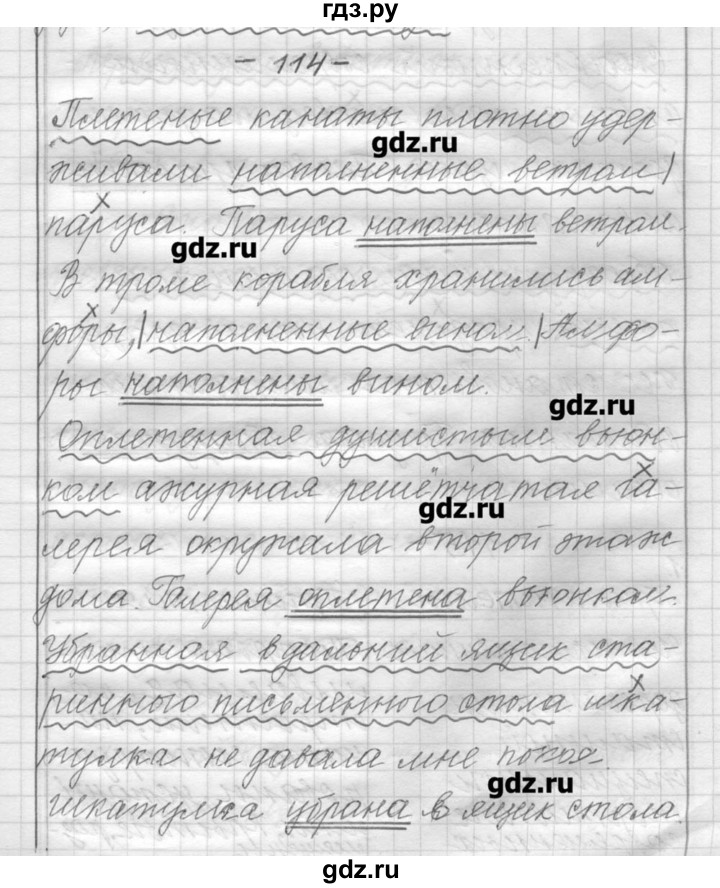 гдз.ру
- 114 -
Плетеные канаты плотно удер-
gdz.ru
живали наполненные ветром|
паруса. Паруса наполнены ветром.
gdz.ru
В трюме корабля хранились ам-
форы,|наполненные вином.|Амфо-
ры наполнены вином.
gdz.ru
Оплетенная душистым вьюн-
ком ажурная решётчатая га-
gdz.ru
лерея окружала второй этаж
дома. Галерея оплетена вьюнком.
Убранная в дальний ящик ста-
ринного письменного стола шка-
тулка не давала мне покоя.
gdz.ru
Шкатулка убрана в ящик стола
gdz.ru